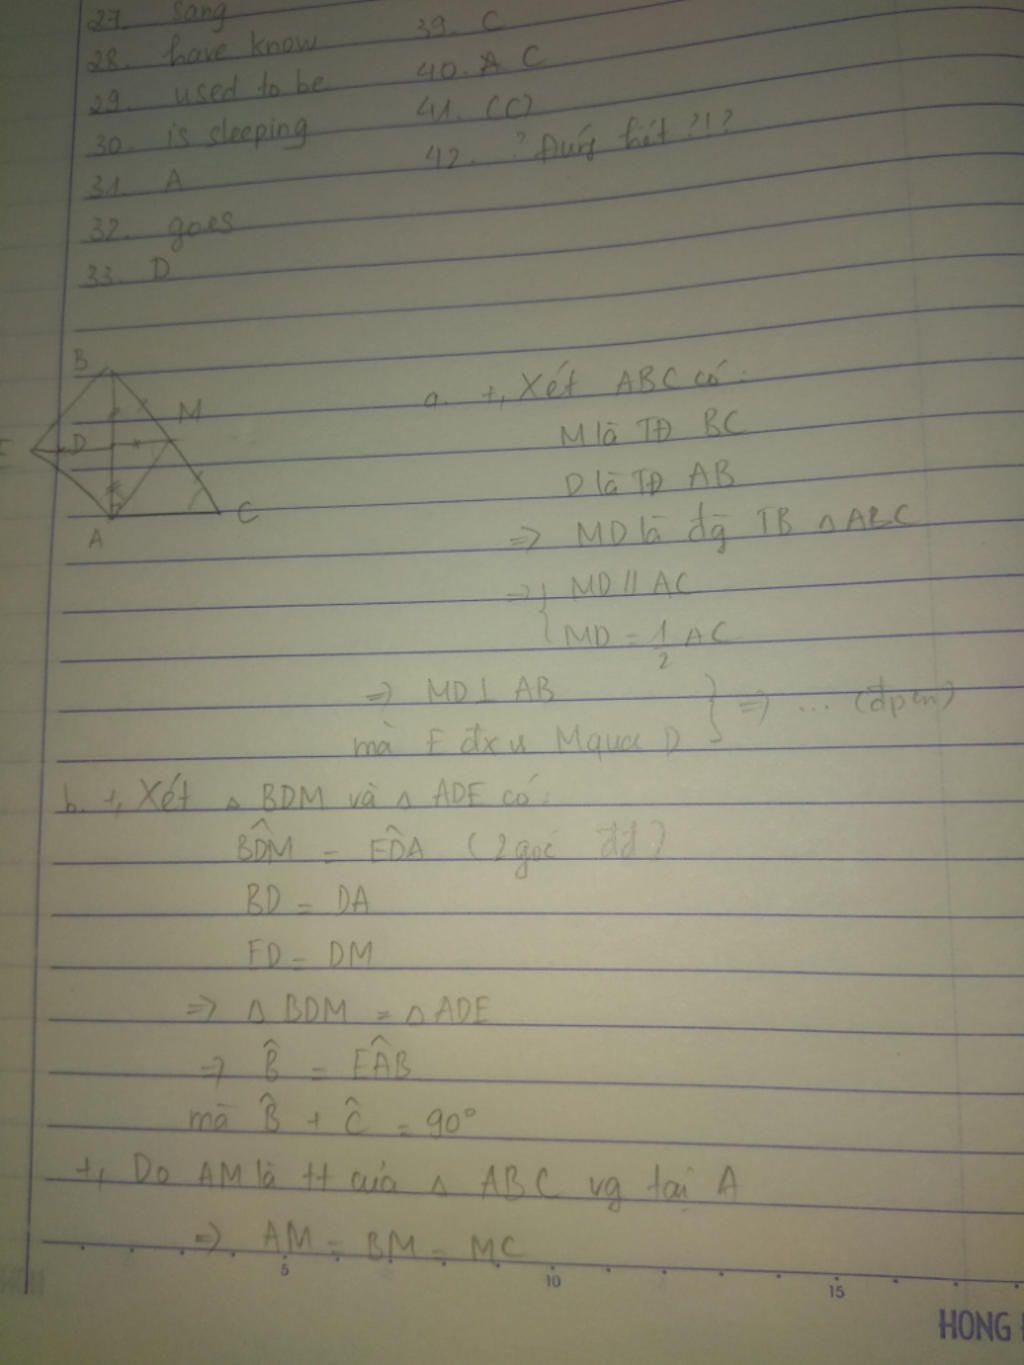 27. sang
28. have know
29. used to be
30. is sleeping
31. A
32. goes
33. D
39. C
40. A C
41. (C)
42. ? Đúng hết ?!?
B
M
E
D
A
C
a. +, Xét ABC có:
M là TĐ BC
D là TĐ AB
=> MD là đg TB △ ABC
=> { MD // AC
{ MD = 1/2 AC
=> MD ⊥ AB
mà E đx vs M qua D } => ... (đpcm)
b. +, Xét △ BDM và △ ADE có:
BD̂M = ED̂A (2 góc đđ)
BD = DA
ED = DM
=> △ BDM = △ ADE
=> B̂ = EÂB
mà B̂ + Ĉ = 90°
+, Do AM là tt của △ ABC vg tại A
=> AM = BM = MC
5
10
15
HONG